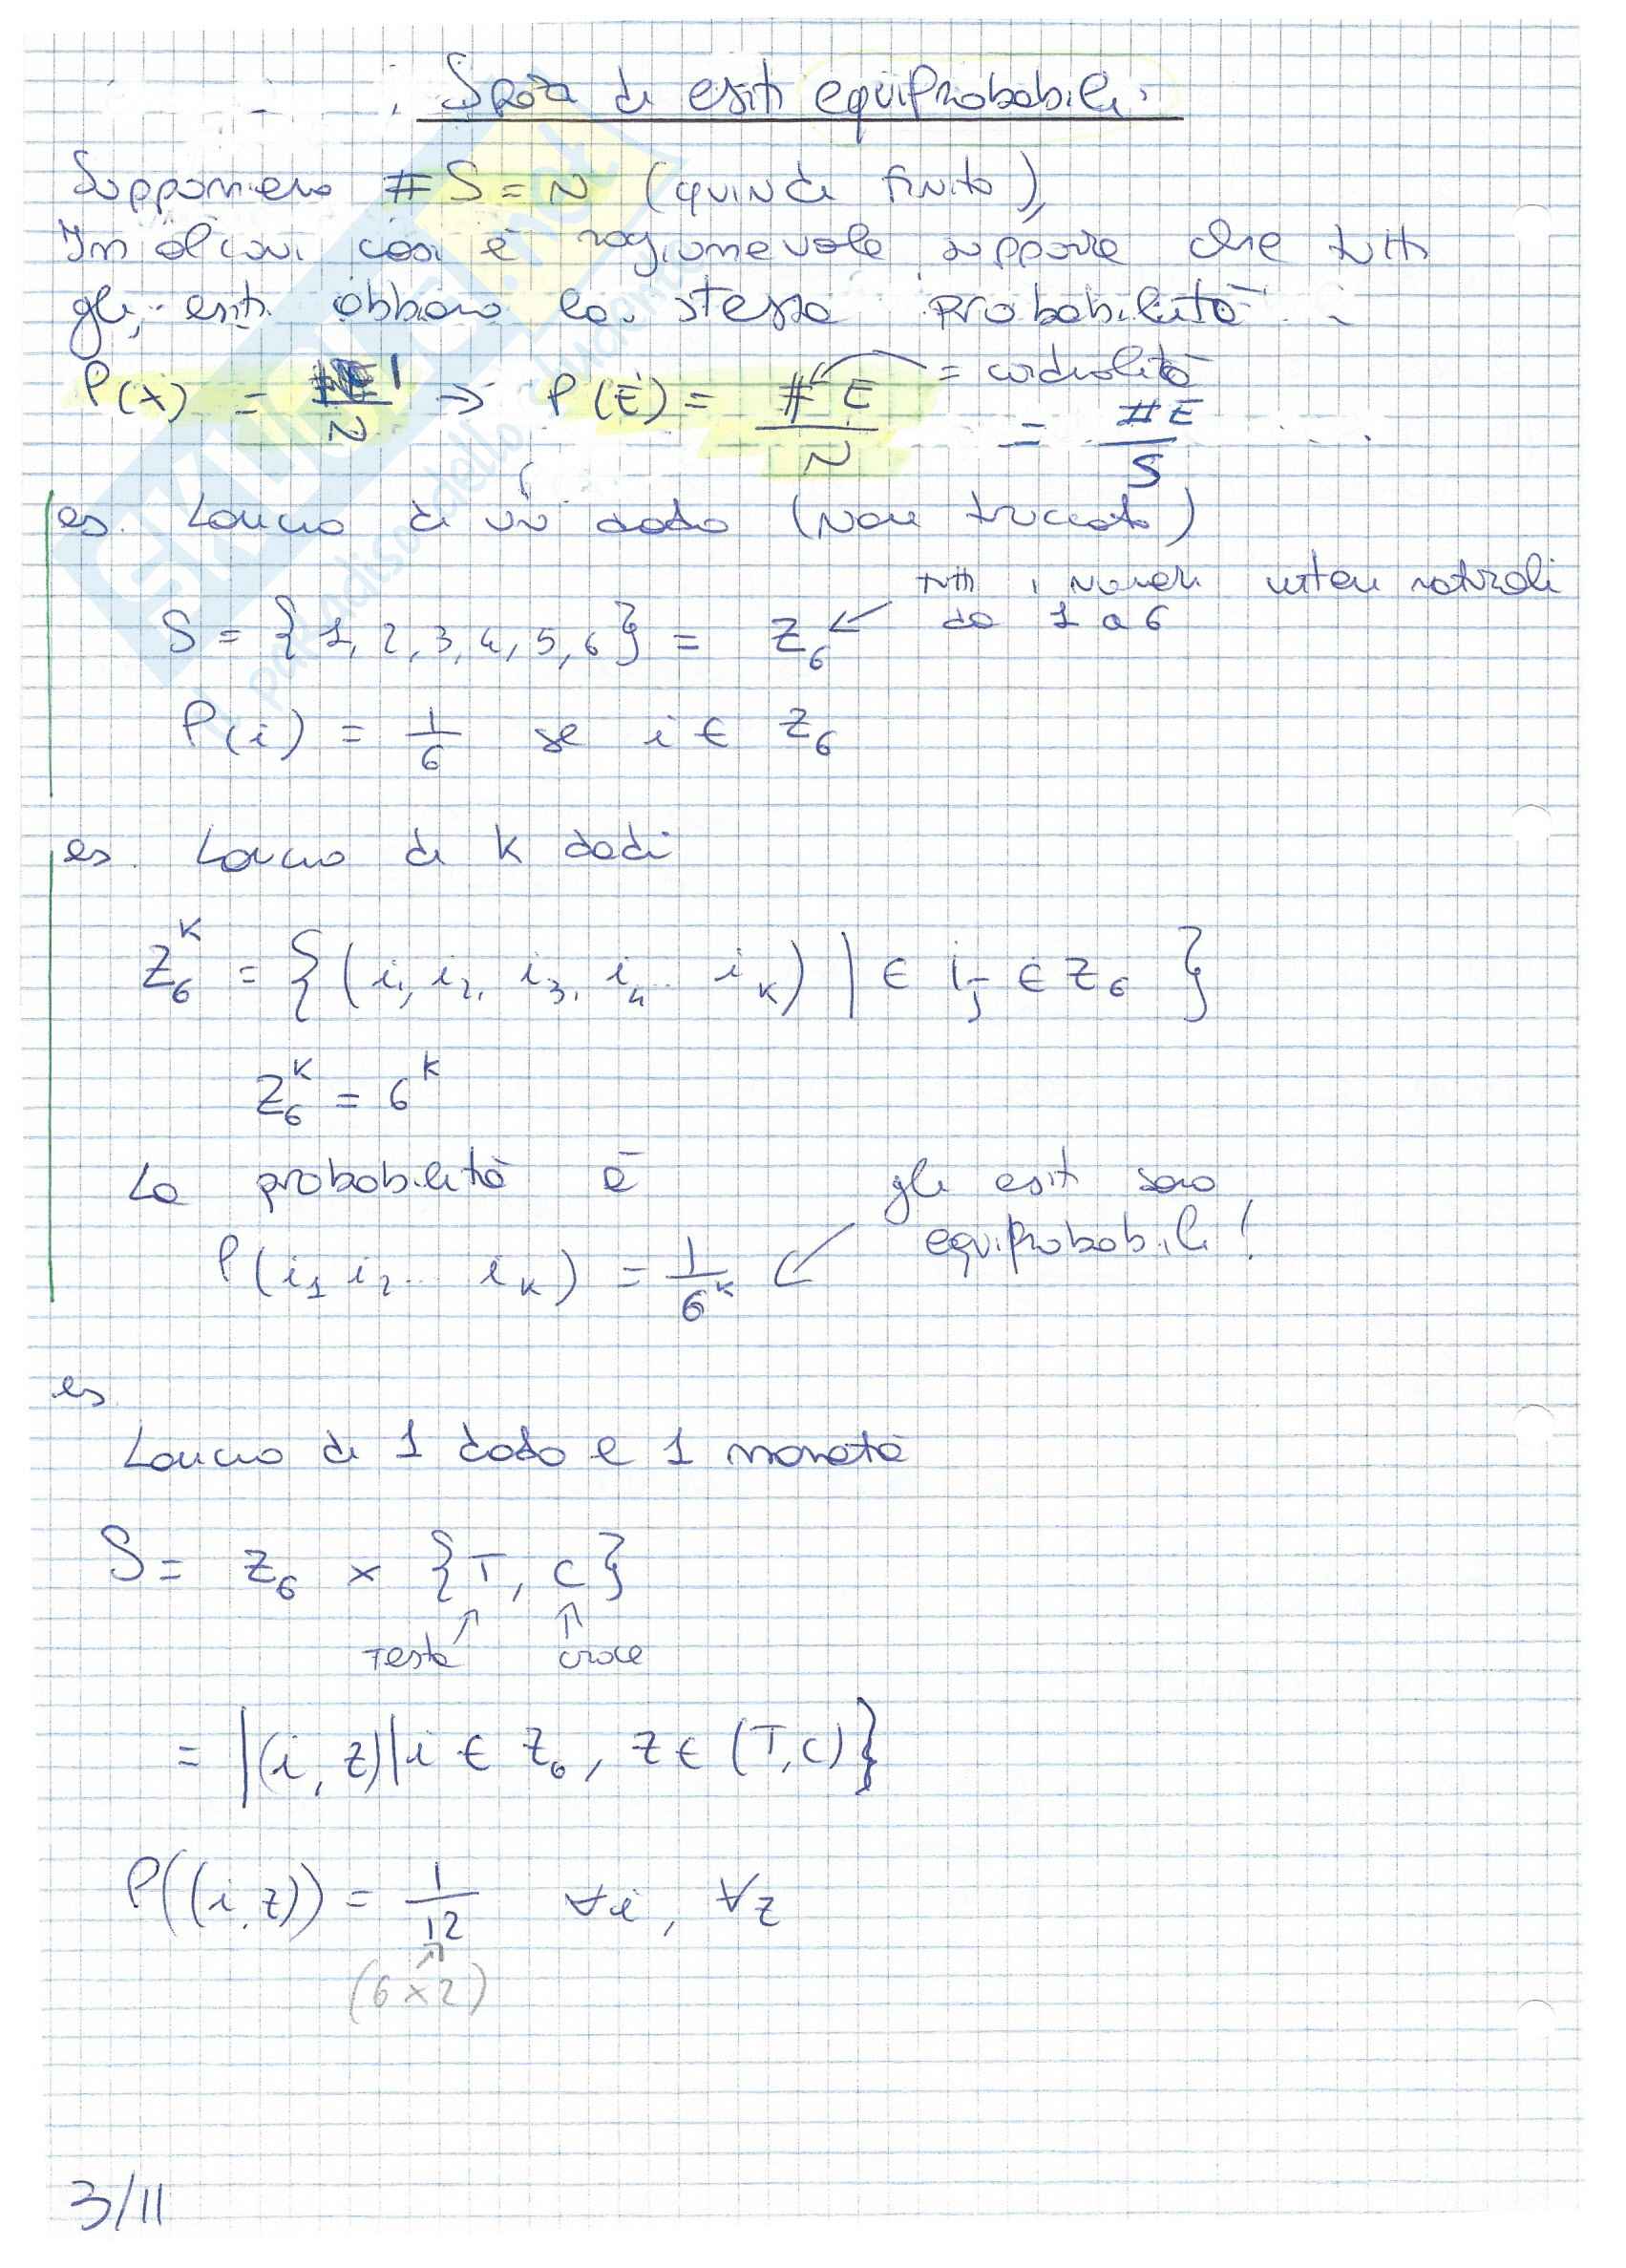 Spazi di esiti equiprobabili
Supponiamo # S = N (quindi finito),
In alcuni casi è ragionevole supporre che tutti
gli esiti abbiano la stessa probabilità
P(x) = 1/N → P(E) = #E/N = cardinalità
= #E/S
es. Lancio di un dado (non truccato)
tutti i numeri interi naturali
da 1 a 6
S = {1, 2, 3, 4, 5, 6} = Z₆
P(i) = 1/6 se i ∈ Z₆
es. Lancio di K dadi
Z₆ᴷ = {(i₁, i₂, i₃, i₄ .. iₖ) | ∈ iⱼ ∈ Z₆ }
Z₆ᴷ = 6ᵏ
La probabilità è
gli esiti sono
equiprobabili!
P(i₁ i₂ .. iₖ) = 1/6ᵏ
es
Lancio di 1 dado e 1 moneta
S = Z₆ × {T, C}
Testa croce
= |(i, z)|i ∈ Z₆, z ∈ (T,C)}
P((i,z)) = 1/12 ∀i, ∀z
(6 x 2)
3/11
SKUOLA.net
il paradiso dello studente